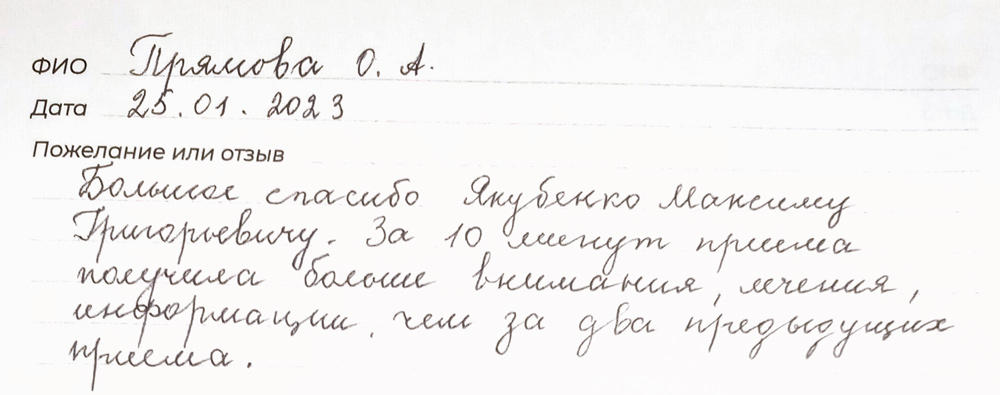 ФИО Прямова О. А.
Дата 25.01.2023
Пожелание или отзыв
Большое спасибо Якубенко Максиму
Григорьевичу. За 10 минут приема
получила больше внимания, лечения,
информации, чем за два предыдущих
приема.